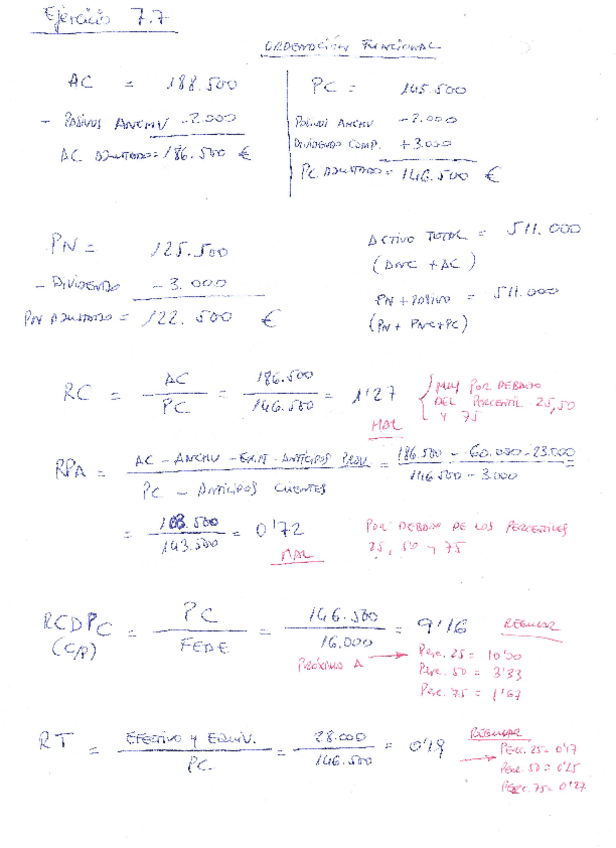 Ejercicio 7.7
ORDENACIÓN FUNCIONAL
AC = 188.500
- PASIVOS ANCMV -2.000
AC AJUSTADO = 186.500 €
PC = 145.500
PASIVOS ANCMV -2.000
DIVIDENDO COMP. +3.000
PC AJUSTADO = 146.500 €
PN = 125.500
- DIVIDENDO -3.000
PN AJUSTADO = 122.500 €
ACTIVO TOTAL = 511.000
(ANC + AC)
PN + PASIVO = 511.000
(PN + PNC + PC)
RC = AC / PC = 186.500 / 146.500 = 1'27
MUY POR DEBAJO
DEL PERCENTIL 25, 50
Y 75
MAL
RPA = AC - ANCMV - EXIST - ANTICIPOS PROV / PC - ANTICIPOS CLIENTES = 186.500 - 60.000 - 23.000 / 146.500 - 3.000
= 103.500 / 143.500 = 0'72
MAL
POR DEBAJO DE LOS PERCENTILES
25, 50 y 75
RCDPC (C/P) = PC / FEDE = 146.500 / 16.000 = 9'16
REGULAR
PRÓXIMO A
Perc. 25 = 10'00
Perc. 50 = 3'33
Perc. 75 = 1'67
RT = EFECTIVO Y EQUIV. / PC. = 28.000 / 146.500 = 0'19
REGULAR
Perc. 25 = 0'17
Perc. 50 = 0'25
Perc. 75 = 0'27